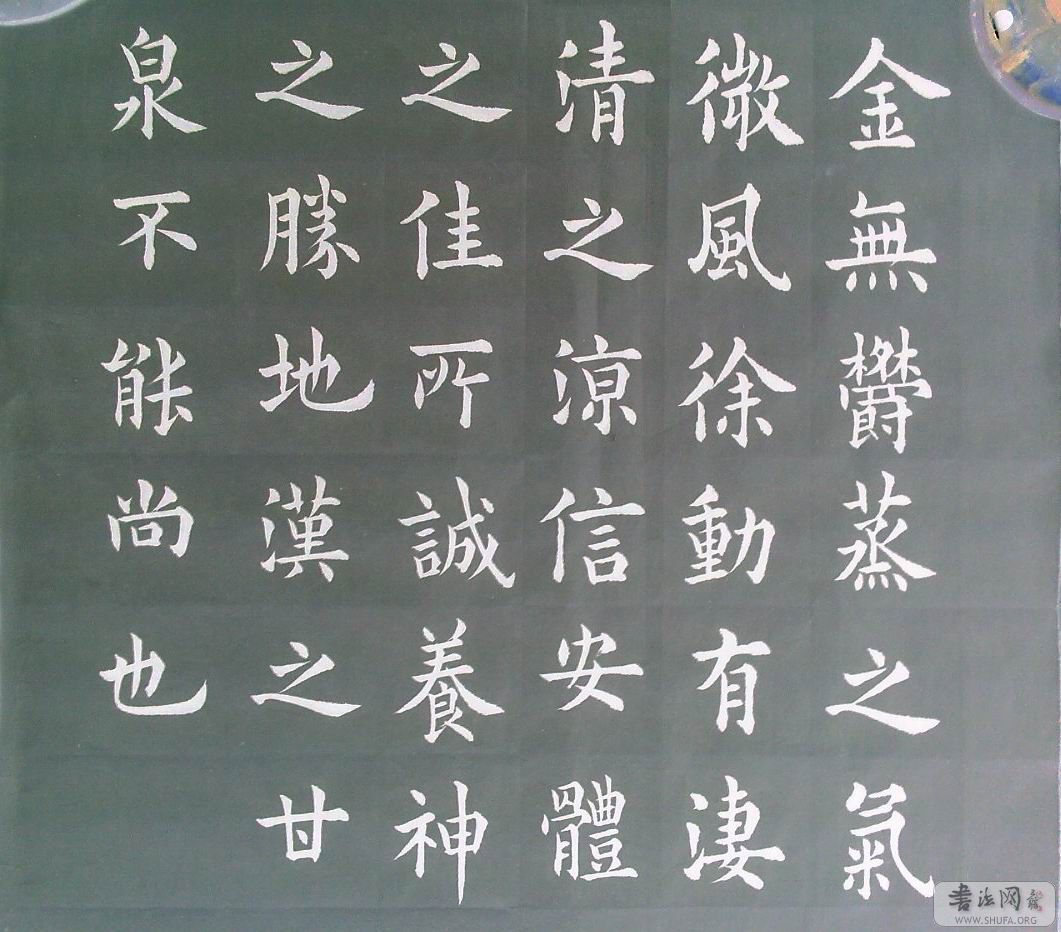 金無欝蒸之氣
微風徐動有淒
清之涼信安體
之佳所誠養神
之勝地漢之甘
泉不能尚也
書法网
WWW.SHUFA.ORG